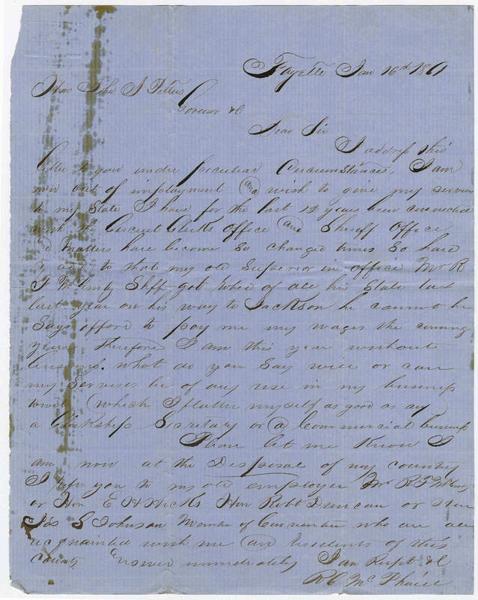 Fayette Jan 16th 1861
Hon John J Pettus
Governor &c
Dear Sir
I address this
letter to you under peculiar circumstances, I am
now out of employment and wish to give my services
to my State I have for the last 12 years been connected
with the Circuit Clerks Office and Sheriff Office
and matters have become so changed times so hard
that my old Superior in office Mr R
Shff got of all his State
last year on his way to Jackson he cannot he
says afford to pay me my wages the coming
year Therefore I am this year without
what do you say will or can
my services be of any use in my business
(which I flatter myself as good as any
a Clerkship Secretary or a Commercial business
Please let me Know I
am now at the Disposal of my country
I refer you to my old employer Mr R
or Hon E H Hicks Hon Robt Duncan or
Jas S Johnson Member of Convention who are all
acquainted with me and residents of this
county Answer immediately I am Respt &c
R C McPhail